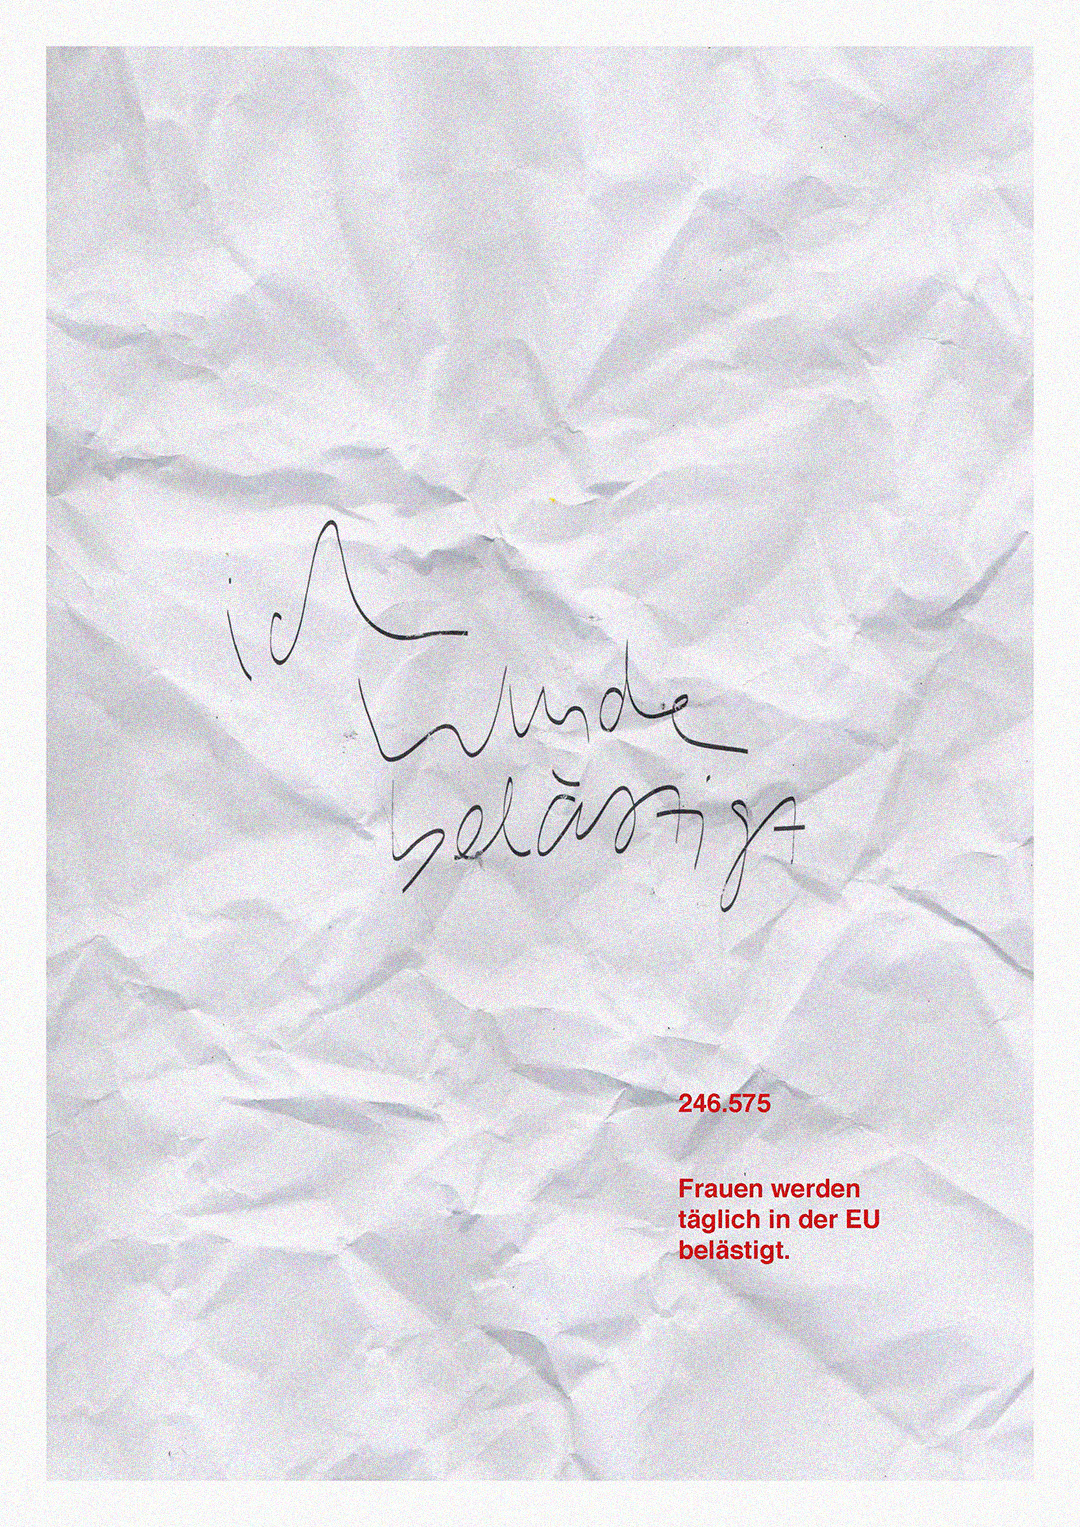 ich
wurde
belästigt
246.575
Frauen werden
täglich in der EU
belästigt.